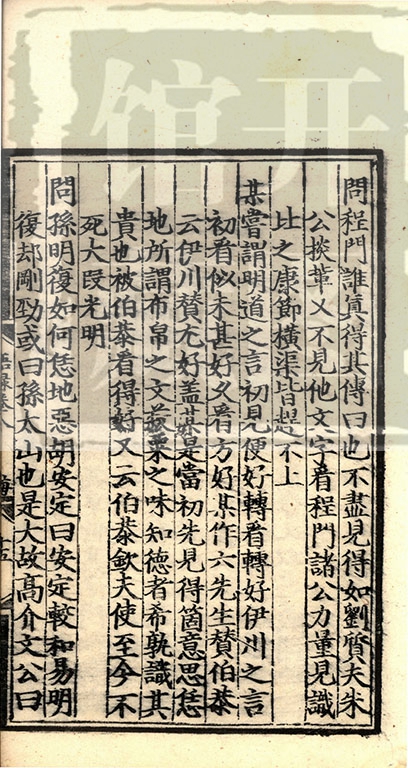 問程門誰眞得其傳曰也不盡見得如劉質夫朱
公掞輩又不見他文字看程門諸公力量見識
比之康節橫渠皆趕不上
某嘗謂明道之言初見便好轉看轉好伊川之言
初看似未甚好久看方好某作六先生贊伯恭
云伊川贊尤好蓋某是當初先見得箇意思恁
地所謂布帛之文菽粟之味知德者希孰識其
貴也被伯恭看得好又云伯恭欽夫使至今不
死大段光明
問孫明復如何恁地惡胡安定曰安定較和易明
復却剛勁或曰孫太山也是大故高介文公曰